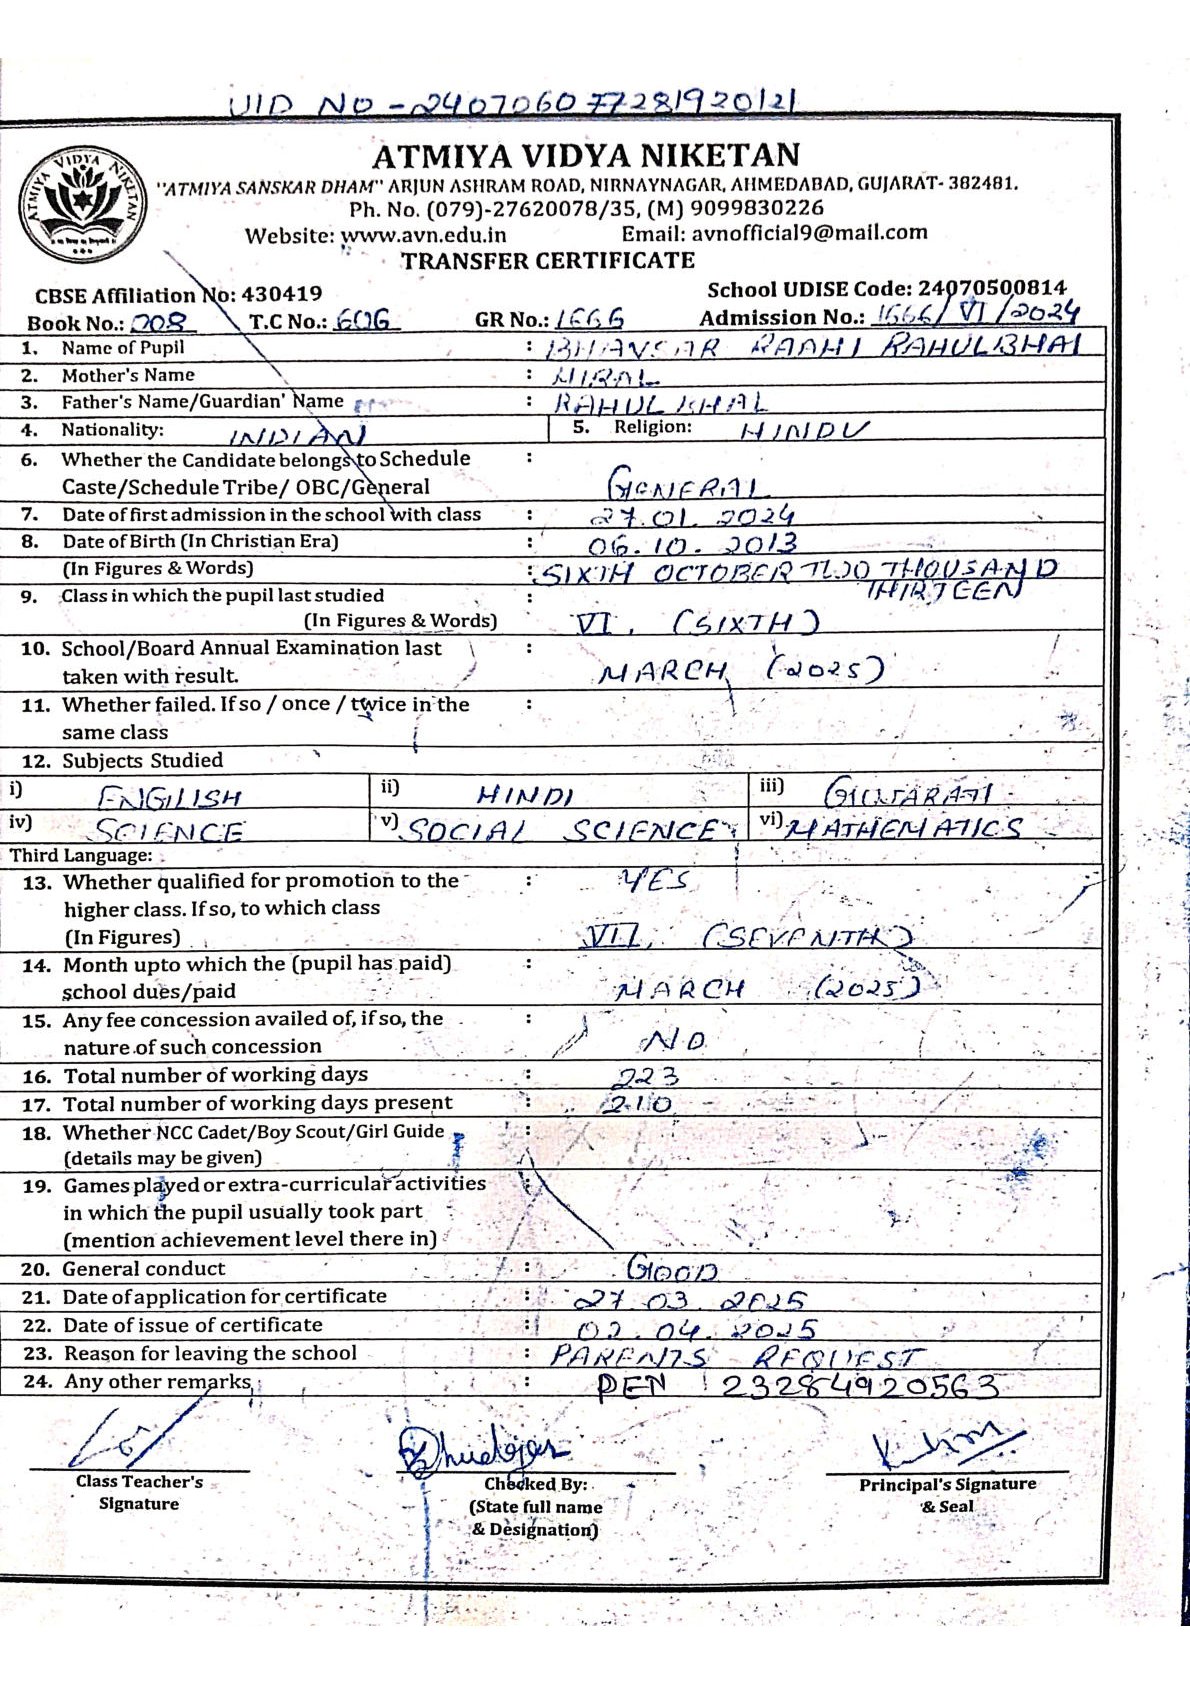 UID NO - 240706077281920121
ATMIYA VIDYA NIKETAN
ATMIYA VIDYA NIKETAN
"ATMIYA SANSKAR DHAM" ARJUN ASHRAM ROAD, NIRNAYNAGAR, AHMEDABAD, GUJARAT- 382481.
Ph. No. (079)-27620078/35, (M) 9099830226
Website: www.avn.edu.in Email: avnofficial9@mail.com
TRANSFER CERTIFICATE
CBSE Affiliation No: 430419 School UDISE Code: 24070500814
Book No.: 008 T.C No.: 606 GR No.: 1666 Admission No.: 1666/VI/2024
1. Name of Pupil : BHAVSAR RAAHI RAHULBHAI
2. Mother's Name : HIRAL
3. Father's Name/Guardian' Name : RAHULBHAI
4. Nationality: INDIAN 5. Religion: HINDU
6. Whether the Candidate belongs to Schedule :
Caste/Schedule Tribe/ OBC/General GENERAL
7. Date of first admission in the school with class : 27.01.2024
8. Date of Birth (In Christian Era) : 06.10.2013
(In Figures & Words) : SIXTH OCTOBER TWO THOUSAND
THIRTEEN
9. Class in which the pupil last studied :
(In Figures & Words) VI. (SIXTH)
10. School/Board Annual Examination last :
taken with result. MARCH (2025)
11. Whether failed. If so / once / twice in the :
same class
12. Subjects Studied
i) ENGILISH ii) HINDI iii) GUJARATI
iv) SCIENCE v) SOCIAL SCIENCE vi) MATHEMATICS
Third Language:
13. Whether qualified for promotion to the : YES
higher class. If so, to which class
(In Figures) VII. (SEVENTH)
14. Month upto which the (pupil has paid) :
school dues/paid MARCH (2025)
15. Any fee concession availed of, if so, the :
nature of such concession NO
16. Total number of working days : 223
17. Total number of working days present : 210
18. Whether NCC Cadet/Boy Scout/Girl Guide :
(details may be given)
19. Games played or extra-curricular activities :
in which the pupil usually took part
(mention achievement level there in)
20. General conduct : GOOD
21. Date of application for certificate : 27.03.2025
22. Date of issue of certificate : 02.04.2025
23. Reason for leaving the school : PARENTS REQUEST
24. Any other remarks : PEN : 23284920563
Class Teacher's Checked By: Principal's Signature
Signature (State full name & Seal
& Designation)